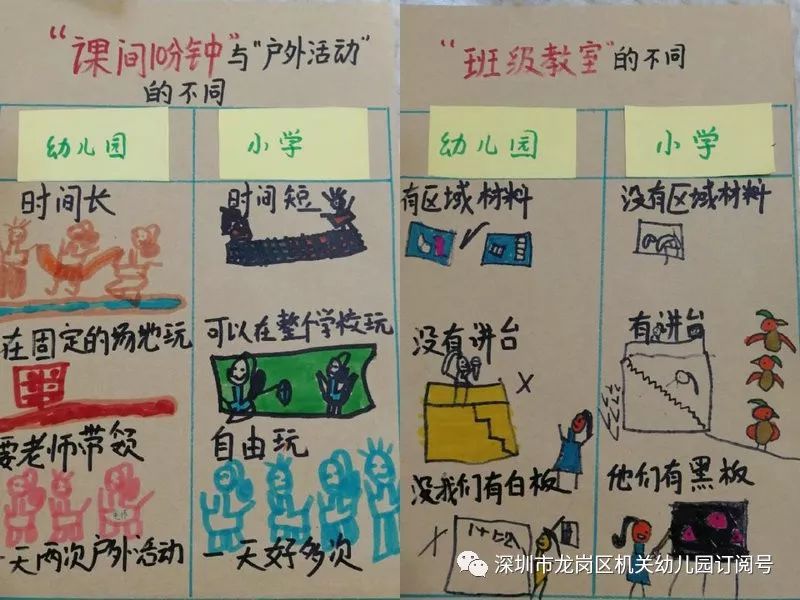 “课间10分钟”与“户外活动”
的不同
幼儿园
小学
时间长
时间短
在固定的场地玩
可以在整个学校玩
要老师带领
自由玩
一天两次户外活动
一天好多次
“班级教室”的不同
幼儿园
小学
有区域材料
没有区域材料
没有讲台
有讲台
没我们有白板
他们有黑板
深圳市龙岗区机关幼儿园订阅号